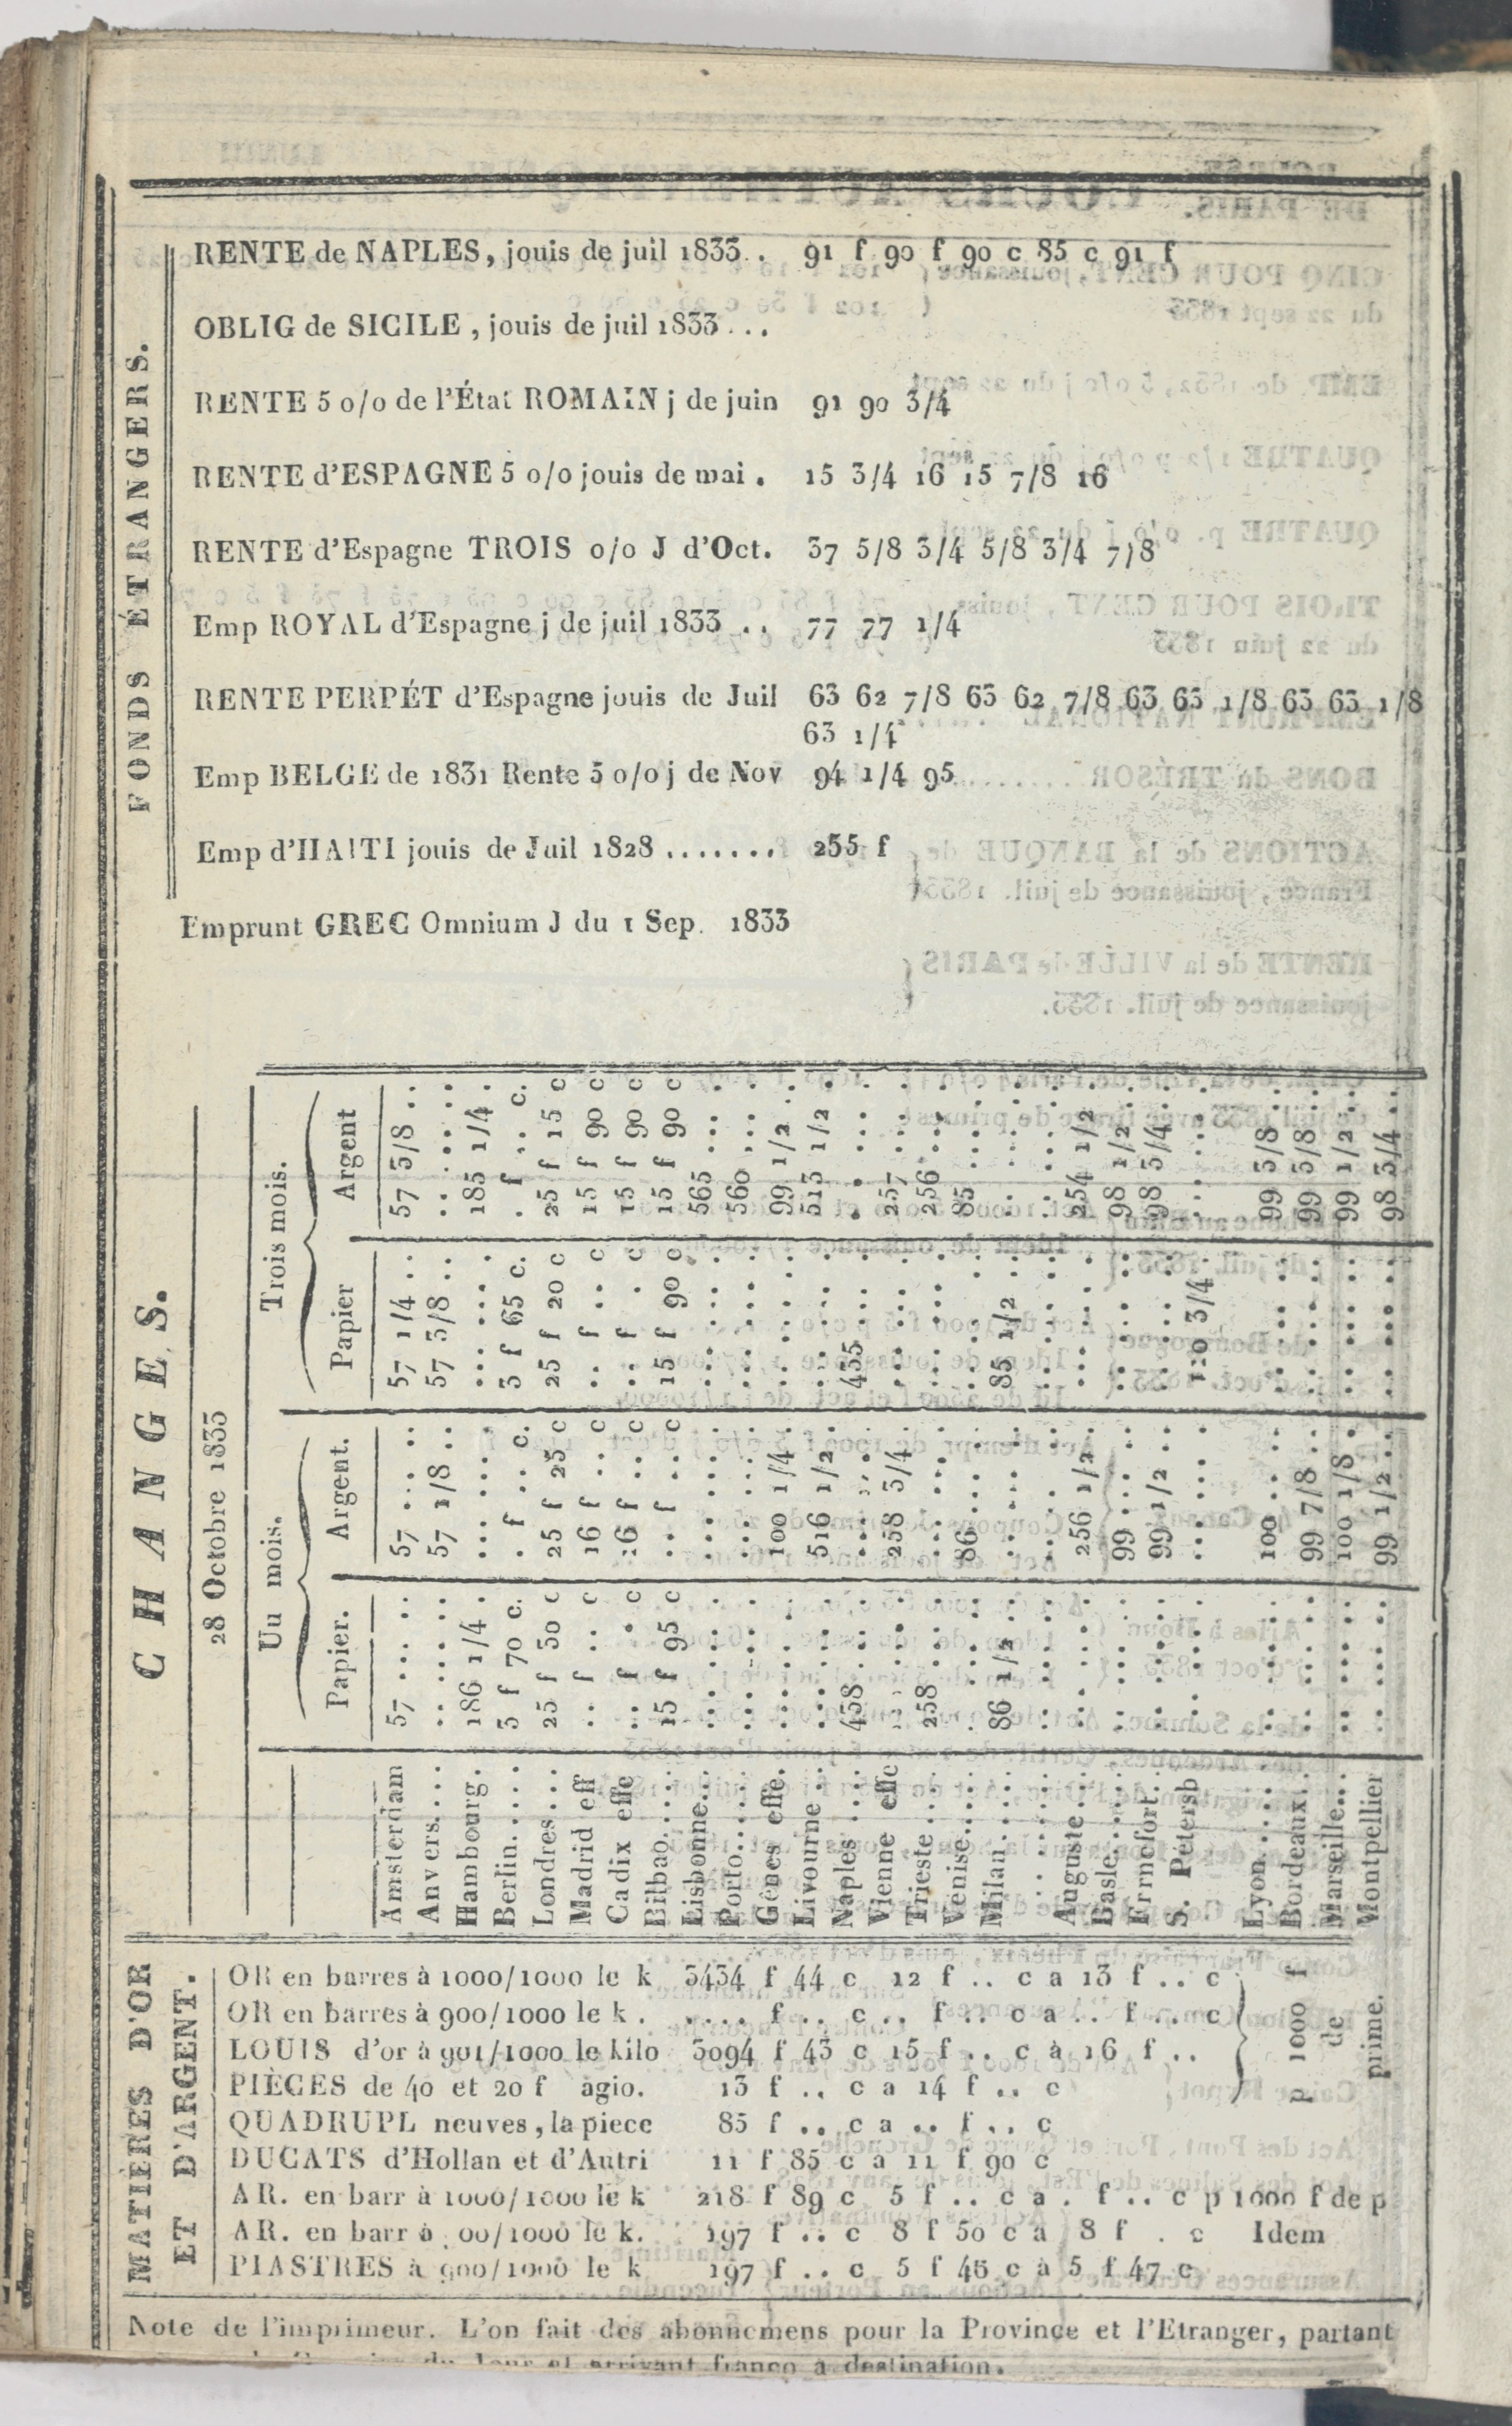 FONDS ÉTRANGERS.
RENTE de NAPLES, jouis de juil 1833.. 91 f 90 f 90 c 85 c 91 f
OBLIG de SICILE, jouis de juil 1833...
RENTE 5 o/o de l'État ROMAIN j de juin 91 90 3/4
RENTE d'ESPAGNE 5 o/o jouis de mai. 15 3/4 16 15 7/8 16
RENTE d'Espagne TROIS o/o J d'Oct. 37 5/8 3/4 5/8 3/4 7/8
Emp ROYAL d'Espagne j de juil 1833 .. 77 77 1/4
RENTE PERPÉT d'Espagne jouis de Juil 63 62 7/8 63 62 7/8 63 63 1/8 63 63 1/8
63 1/4
Emp BELGE de 1831 Rente 5 o/o j de Nov 94 1/4 95
Emp d'HAITI jouis de Juil 1828 ....... 255 f
Emprunt GREC Omnium J du 1 Sep. 1833
CHANGES.
28 Octobre 1833
Uu mois. Trois mois.
Papier. Argent. Papier Argent
Amsterdam 57 .... 57 .... 57 1/4 .. 57 3/8 ..
Anvers.... ...... 57 1/8 .. 57 3/8 .. ......
Hambourg. 186 1/4 . ...... ...... 185 1/4 .
Berlin..... 3 f 70 c. . f .. c. 3 f 65 c. . f .. c.
Londres.... 25 f 30 c 25 f 25 c 25 f 20 c 25 f 15 c
Madrid eff .. f .. c 16 f .. c .. f .. c 15 f 90 c
Cadix effe .. f . c 16 f .. c .. f . c 15 f 90 c
Bilbao..... 15 f 95 c .. f .. c 15 f 90 c 15 f 90 c
Lisbonne... ...... ...... ...... 565 ...
Porto...... ...... ...... ...... 560 ...
Gènes effe. ...... 100 1/4 . ...... 99 1/2 ..
Livourne .. ...... 516 1/2 . ...... 513 1/2 .
Naples .... 438 ... ...... 435 ... ......
Vienne effc ...... 258 3/4 . ...... 257 ...
Trieste .... 258 ... ...... ...... 256 ...
Venise..... ...... 86 .... ...... 85 ....
Milan ..... 86 1/2 .. ...... 85 1/2 .. ......
Auguste ... ...... 256 1/2 . ...... 254 1/2 .
Basle...... ...... 99 .... ...... 98 1/2 ..
Frrncfort.. ...... 99 1/2 .. ...... 98 3/4 ..
S. Pétersb ...... ...... 110 3/4 . ......
Lyon ...... ...... 100 ... ...... 99 3/8 ..
Bordeaux.. ...... 99 7/8 .. ...... 99 3/8 ..
Marseille... ...... 100 1/8 . ...... 99 1/2 ..
Montpellier ...... 99 1/2 .. ...... 98 3/4 ..
MATIÈRES D'OR
ET D'ARGENT.
OR en barres à 1000/1000 le k 3434 f 44 c 12 f .. c a 13 f .. c
OR en barres à 900/1000 le k . .... f .. c .. f .. c a .. f .. c
LOUIS d'or à 901/1000 le kilo 3094 f 43 c 15 f .. c à 16 f ..
PIÈCES de 40 et 20 f agio. 13 f .. c a 14 f .. c
p 1000 f
de
prime.
QUADRUPL neuves, la piece 85 f .. c a .. f .. c
DUCATS d'Hollan et d'Autri 11 f 85 c a 11 f 90 c
AR. en barr à 1000/1000 le k 218 f 89 c 5 f .. c a . f .. c p 1000 f de p
AR. en barr à 00/1000 le k. 197 f .. c 8 f 50 c a 8 f . c Idem
PIASTRES à 900/1000 le k 197 f .. c 5 f 46 c à 5 f 47 c
Note de l'imprimeur. L'on fait des abonnemens pour la Province et l'Etranger, partant
du Jour et arrivant franco a destination.